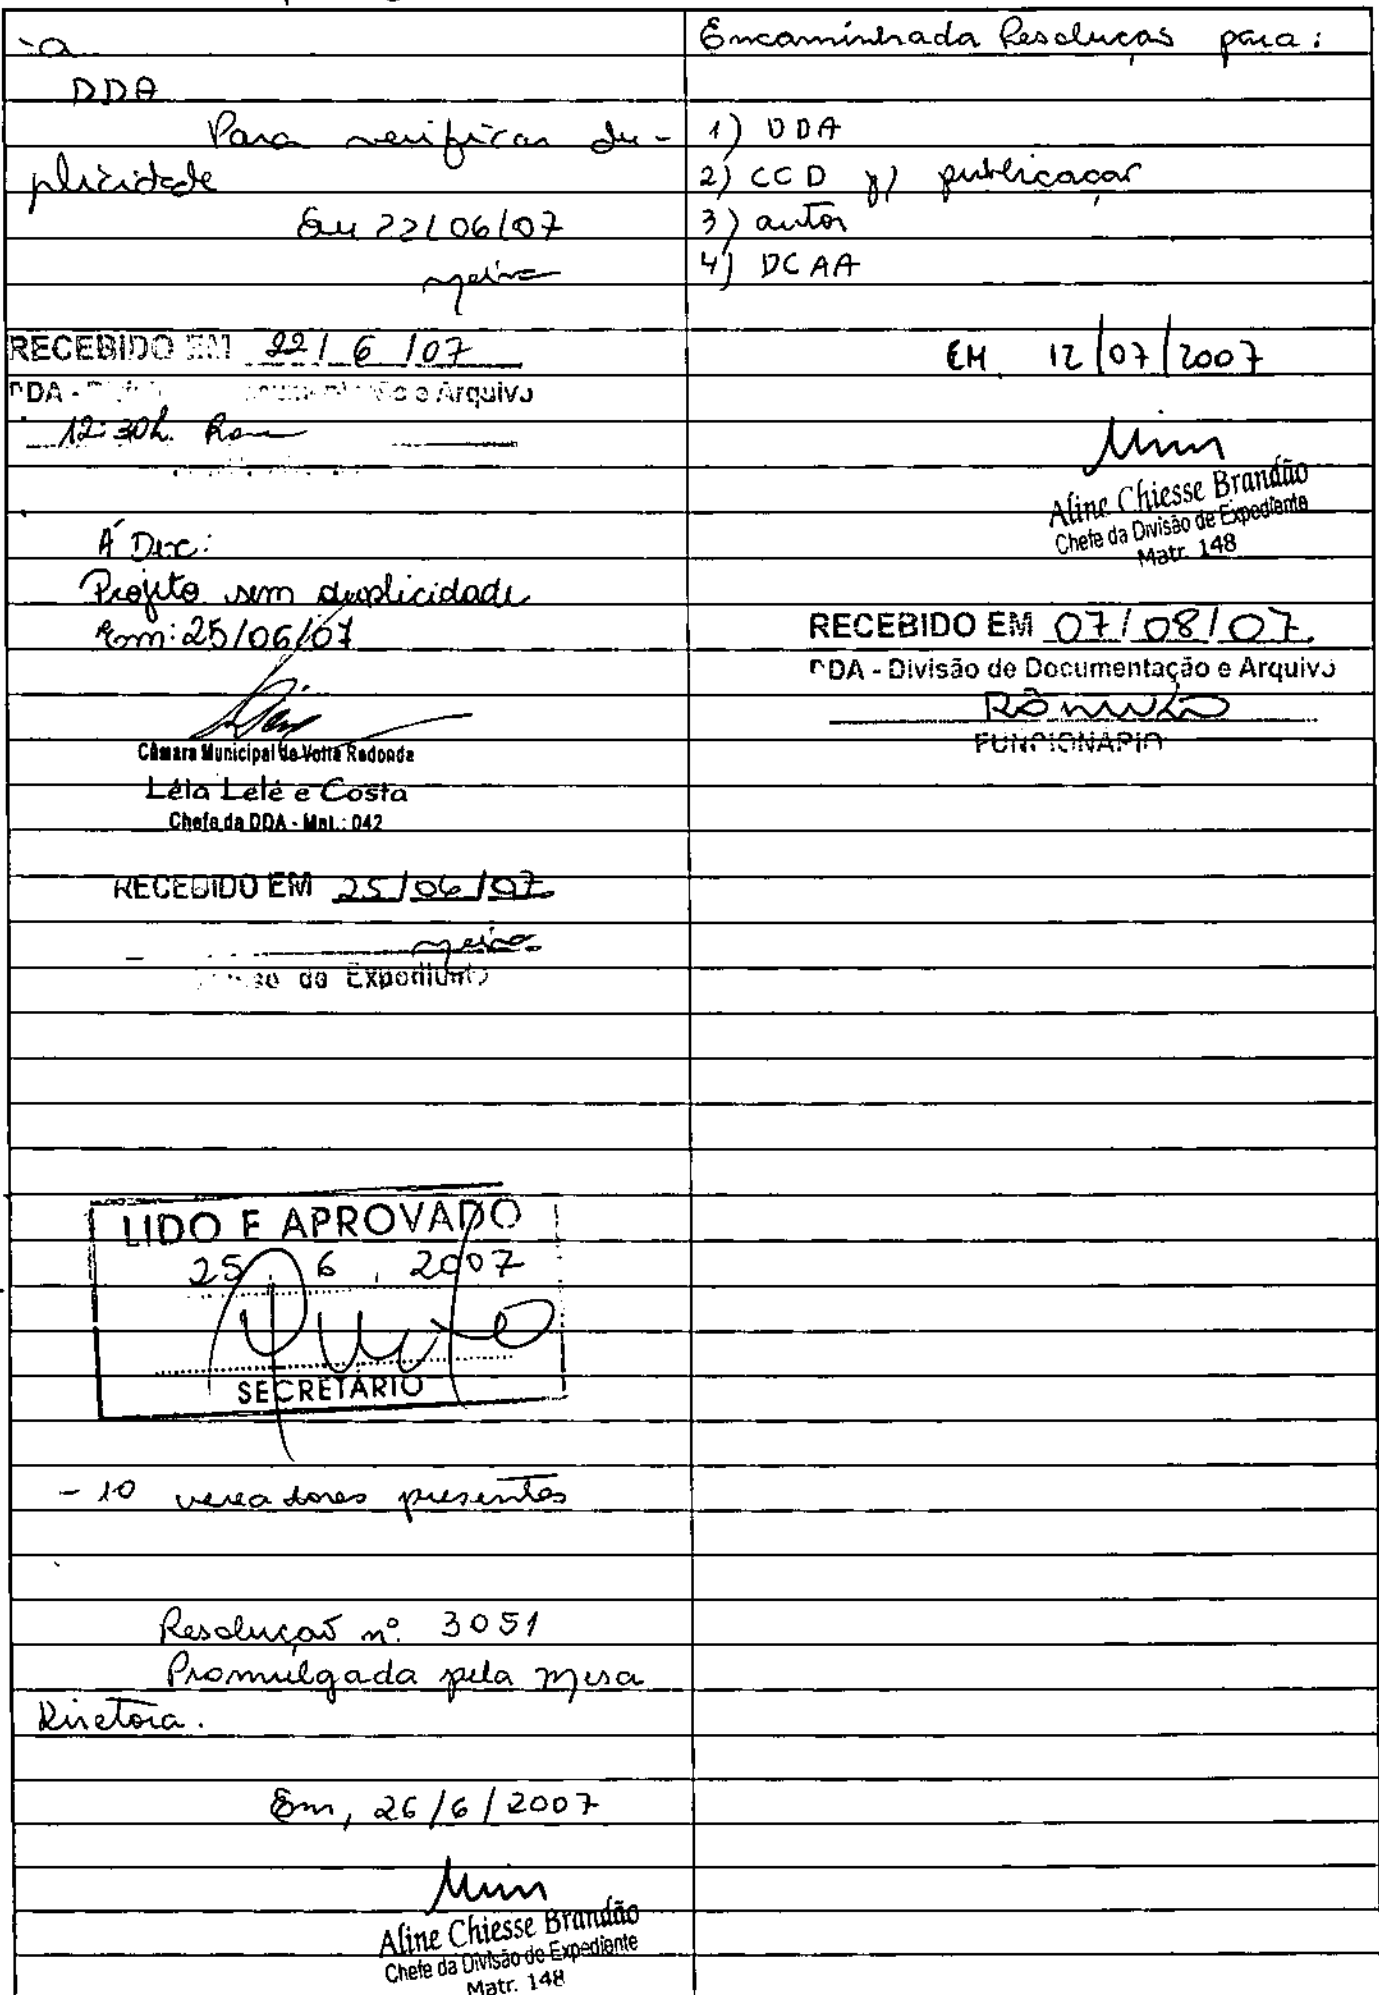 -a
DDA
Para verificar du-
plicidade
Em 22/06/07
RECEBIDO EM 22/6/07
DDA - e Arquivo
12:30h.
À Dex:
Projeto sem duplicidade
Em: 25/06/07
Câmara Municipal de Volta Redonda
Léla Lelé e Costa
Chefe da DDA - Mat.: 042
RECEBIDO EM 25/06/07
de Expediente
LIDO E APROVADO
25 6 2007
SECRETÁRIO
- 10 vereadores presentes
Resolução nº. 3051
Promulgada pela Mesa
Diretora.
Em, 26/6/2007
Aline Chiesse Brandão
Chefe da Divisão de Expediente
Matr. 148
Encaminhada Resolução para:
1) DDA
2) CCD p/ publicação
3) autor
4) DCAA
EM 12/07/2007
Aline Chiesse Brandão
Chefe da Divisão de Expediente
Matr. 148
RECEBIDO EM 07/08/07.
DDA - Divisão de Documentação e Arquivo
RÔMULO
FUNCIONÁRIO